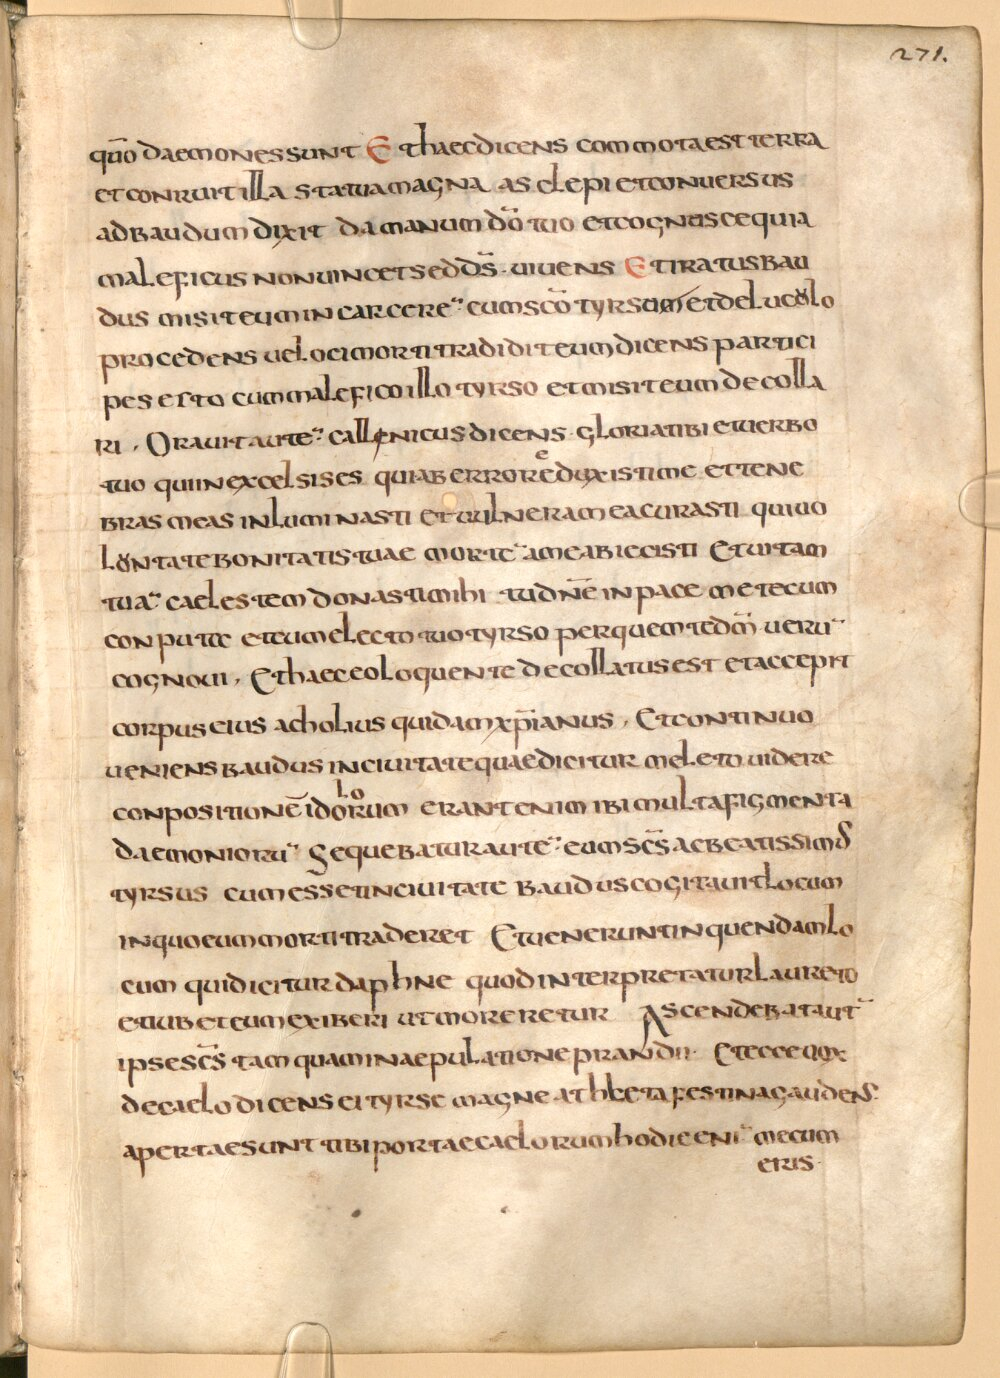 271.
quō daemones sunt Et haec dicens commota est terra
et conruit illa statua magna asclepi et conuersus
ad baudum dixit da manum dō tuo et cognusce quia
maleficus non uincet sed dš uiuens Et iratus bau
dus misit eum in carcere¨ cum scō tyrsum et deluculo
procedens ueloci morti tradidit eum dicens partici
pes esto cum malefico illo tyrso et misit eum decolla
ri. Orauit aute¨ callenicus dicens gloria tibi et uerbo
tuo qui in excelsis es quia ab errore eduxisti me et tene
bras meas inluminasti et uulnera mea curasti qui uo
luntate bonitatis tuae morte¨ a me abiecisti Et uitam
tua¨ caelestem donasti mihi tu dñe in pace me tecum
conpute et eum electo tuo tyrso per quem te dm̄ ueru¨
cognoui, Et haec eo loquente decollatus est et accepit
corpus eius acholius quidam xp̄ianus, Et continuo
ueniens baudus in ciuitate quae dicitur meleto uidere
conpositionē idolorum erant enim ibi multa figmenta
daemonioru¨ Sequebatur aute¨ eum scs̄ ac beatissimus
tyrsus cum esset in ciuitate baudus cogitauit locum
in quo eum morti traderet Et uenerunt in quendam lo
cum qui dicitur daphne quod interpretatur laureto
et iubet eum exiberi ut moreretur Ascendebat aut̄
ipse scs̄ tamquam in aepulatione prandii Et ecce uox
de caelo dicens ei tyrse magne athleta festina gaudens.
apertae sunt tibi portae caelorum hodie eni¨ mecum
eris.